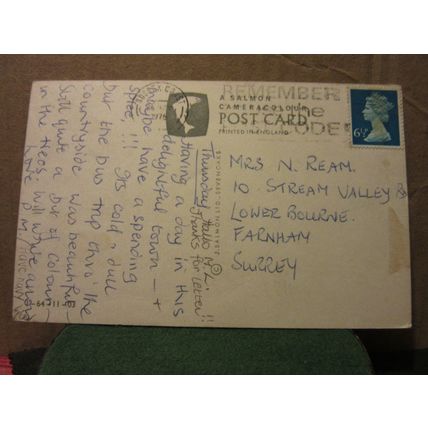 A SALMON
CAMERACOLOUR
POST CARD
PRINTED IN ENGLAND
REMEMBER
the
CODE
6½P
J. SALMON LTD. SEVENOAKS
MRS N. REAM.
10 STREAM VALLEY
LOWER BOURNE.
FARNHAM
SURREY
Thursday. Hallo
Thanks for letter!!
Having a day in this
delightful town – +
have a spending
Spree!!! Its cold + dull
but the bus trip thro' the
countryside was beautiful –
Still quite a bit of colour
in the trees. Will write
Love